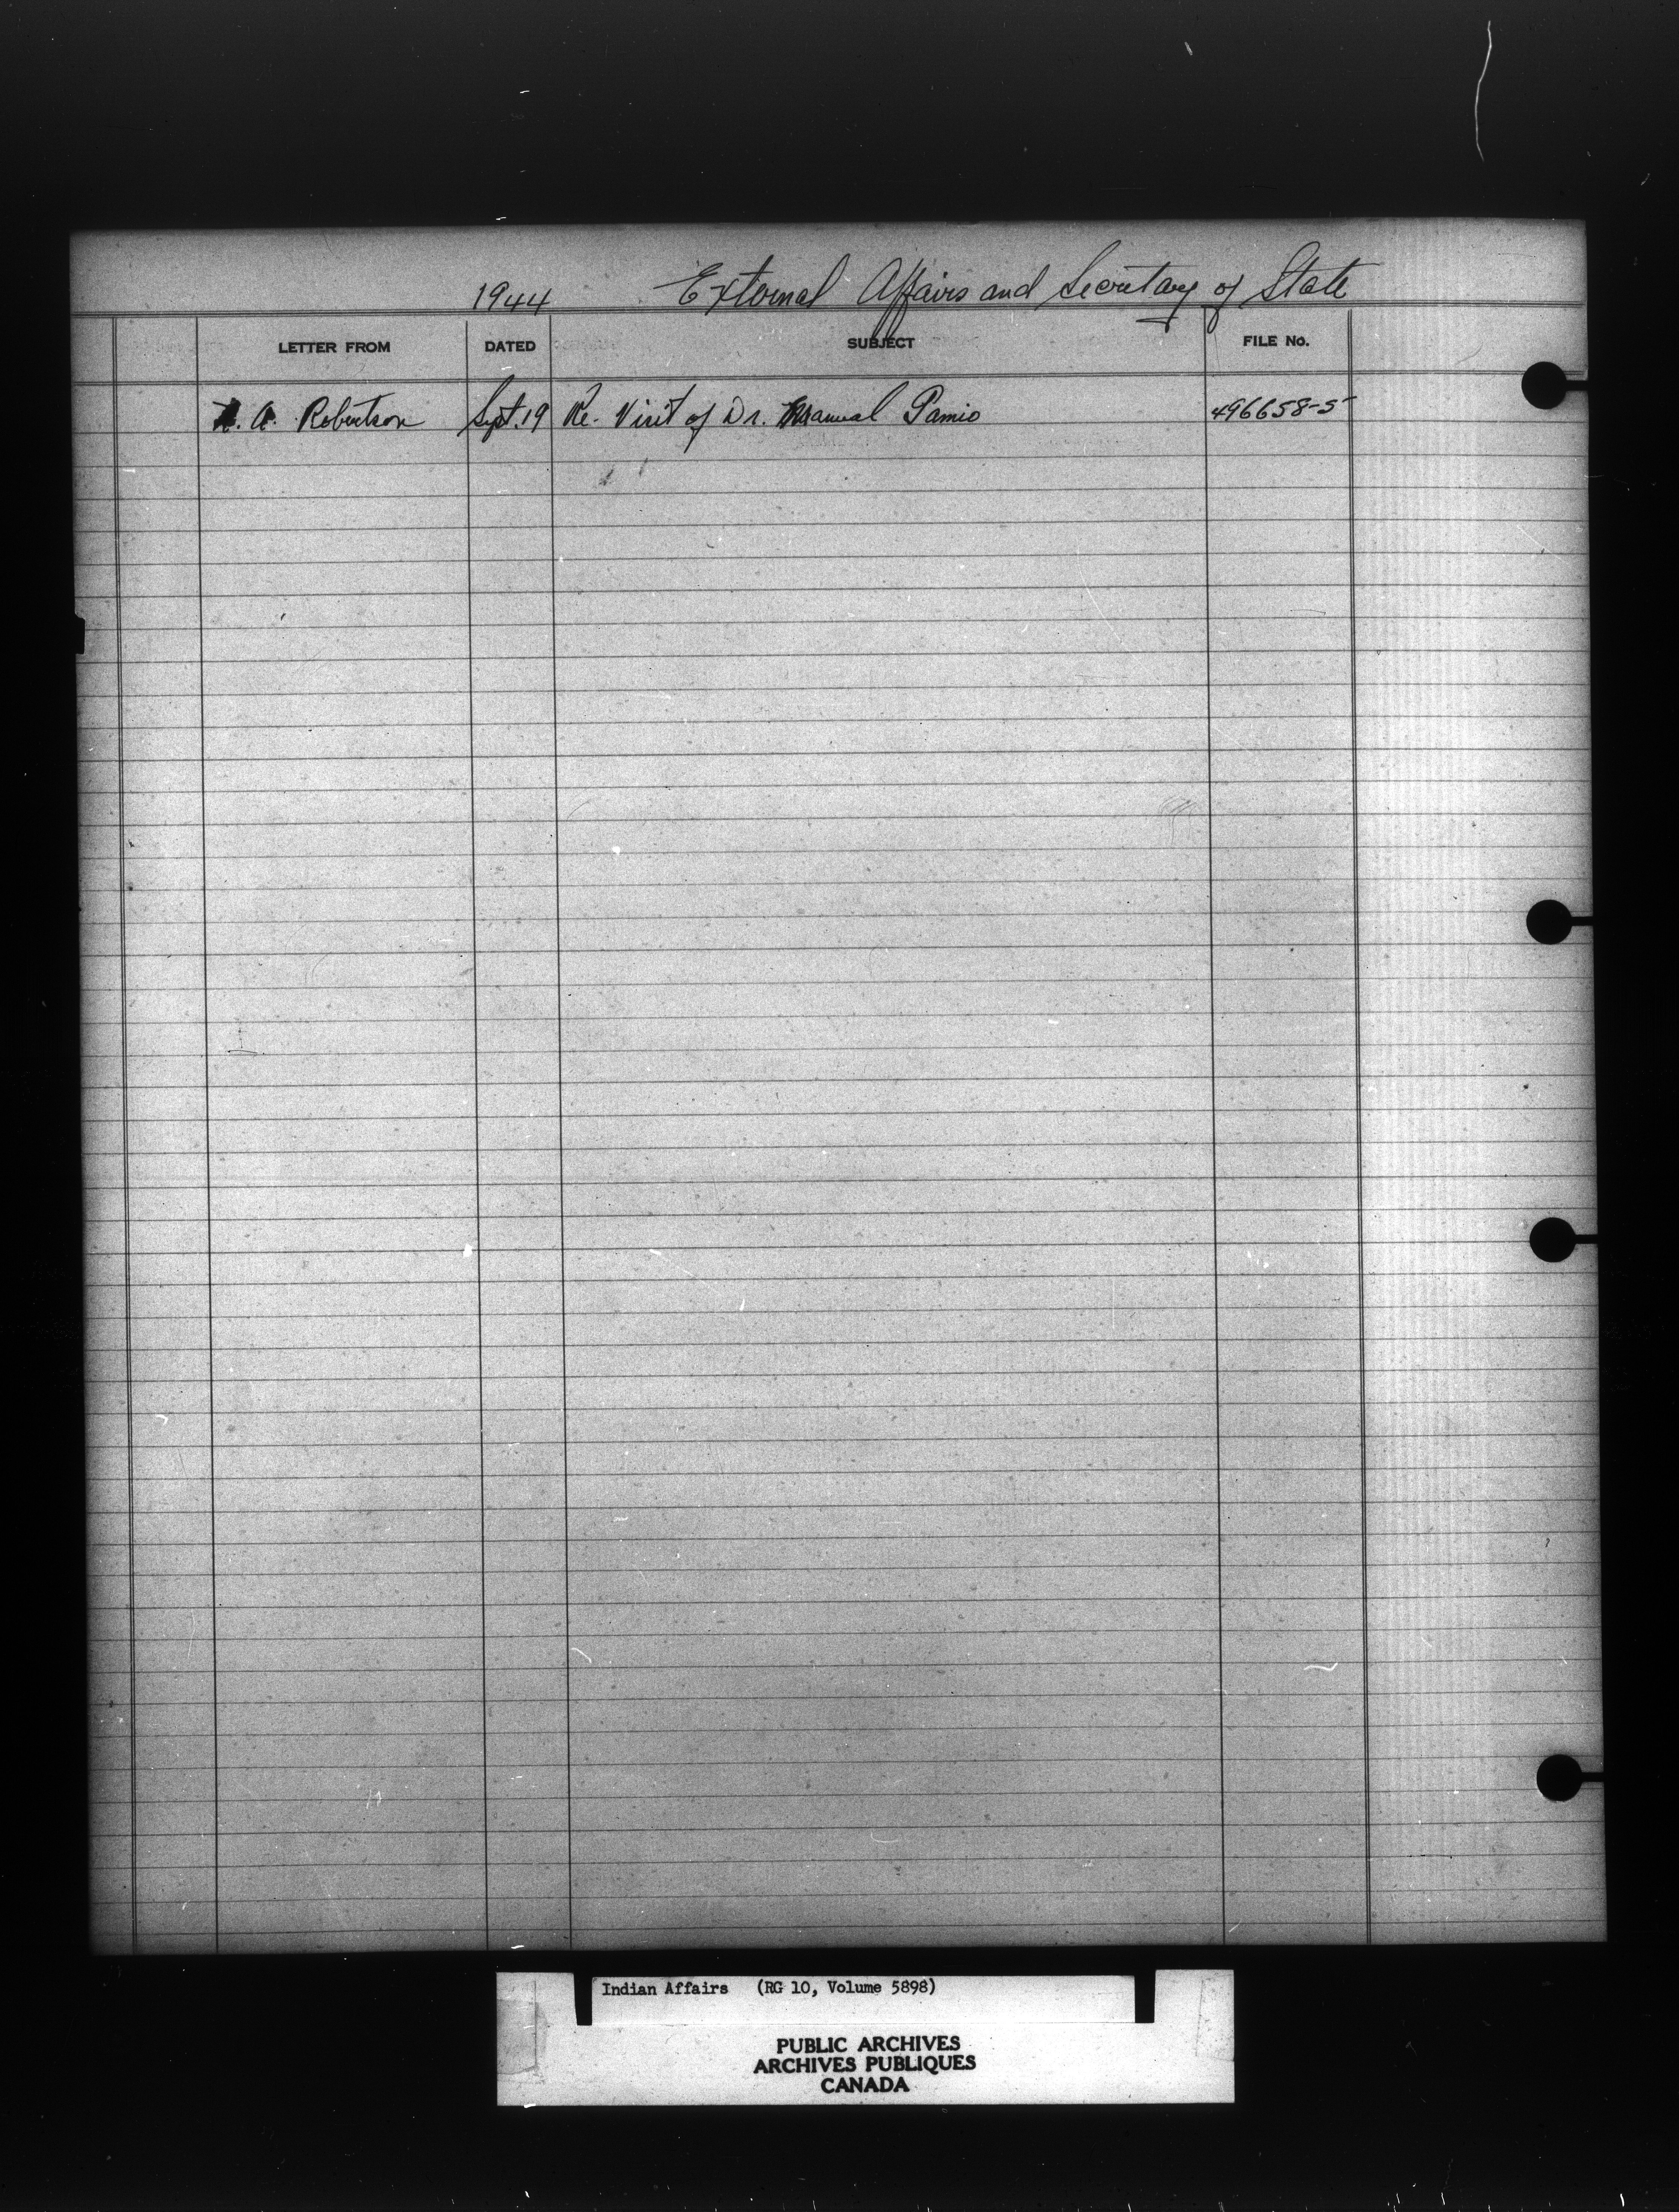 1944 External Affairs and Secretary of State
LETTER FROM DATED SUBJECT FILE No.
A. Robertson Sept. 19 Re. Visit of Dr. Manual Pamio 496658-5
Indian Affairs (RG 10, Volume 5898)
PUBLIC ARCHIVES
ARCHIVES PUBLIQUES
CANADA